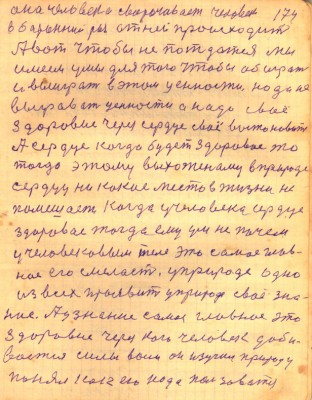 она человека сворочавает человек 174
в баранний рог от ней происходит
А вот чтобы не потдатся мы
имеем умы для того чтобы обиграт
и выиграт в этом ценности. но да не
выграват ценности а надо своё
Здоровие через сердце своё востоновить
А сердце когда будет здоровае то
тогда этому выхоженаму в природе
сердцу ни какое место в жизни не
помешает. Когда у человека сердце
здоровае тогда ему ум не почем
у человековым теле это самае глав-
ное его смеласт. у природе одно
из всех проявит у природе своё зна-
ние. А узнание самае главное это
Здоровие через кого человек доби-
вается силы воли он изучил природу
понял как его нада ползоваты